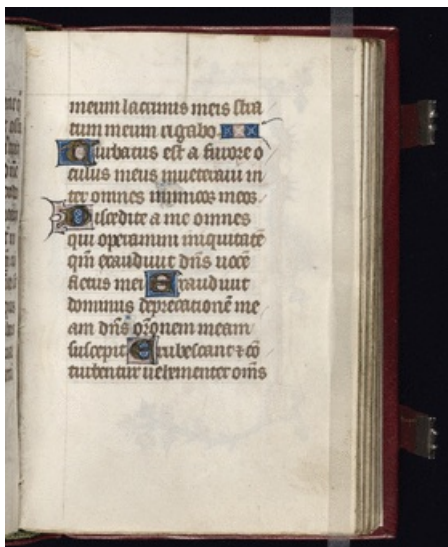 meum lacrimis meis stra
tum meum rigabo
Turbatus est a furore o
culus meus inueteraui in
ter omnes inimicos meos
Discedite a me omnes
qui operamini iniquitatē
qm̄ exaudiuit dn̄s uocē
fletus mei Exaudiuit
dominus deprecationē me
am dn̄s or̄onem meam
suscepit Erubescant ⁊ cō
turbentur uehementer om̄s